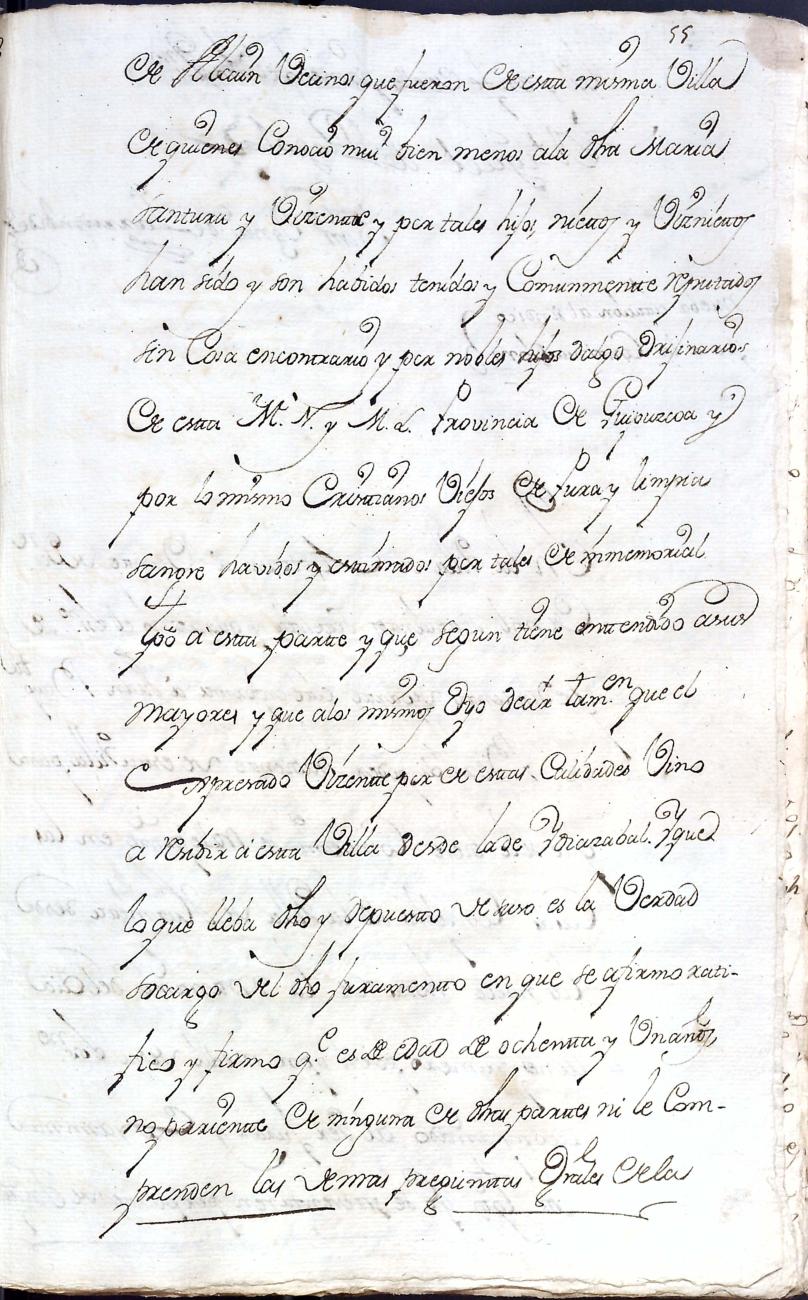 55
de Alcain Vecinos que fueron de estta misma Villa
de quienes Conocio mui bien menos ala dha Maria
Santuru y Vizentte y por tales hijos, niettos y Vizniettos
han sido y son habidos tenidos y Comunmentte reputados
sin Cosa encontrario y por nobles hijos dalgo Orijinarios
de estta M. N. y M. L. Provincia de Guipuzcoa y
por lo mismo Cristtianos Viejos de pura y limpia
sangre havidos y esttimados por tales de immemorial
tpo a estta partte y que segun tiene enttendido asus
Mayores y que alos mismos Oyo decir tam.en que el
expresado Vizentte por de esttas Calidades Vino
a residir a estta Villa desde la de Ydiazabal. Y que
lo que lleba dho y depuestto de suso es la Verdad
socargo del dho juramentto en que se afirmo rati-
fico y firmo q.e es de edad de ochentta y Un años
no parientte de ninguna de dhas parttes ni le Com-
prenden las demas pregunttas Grales de la